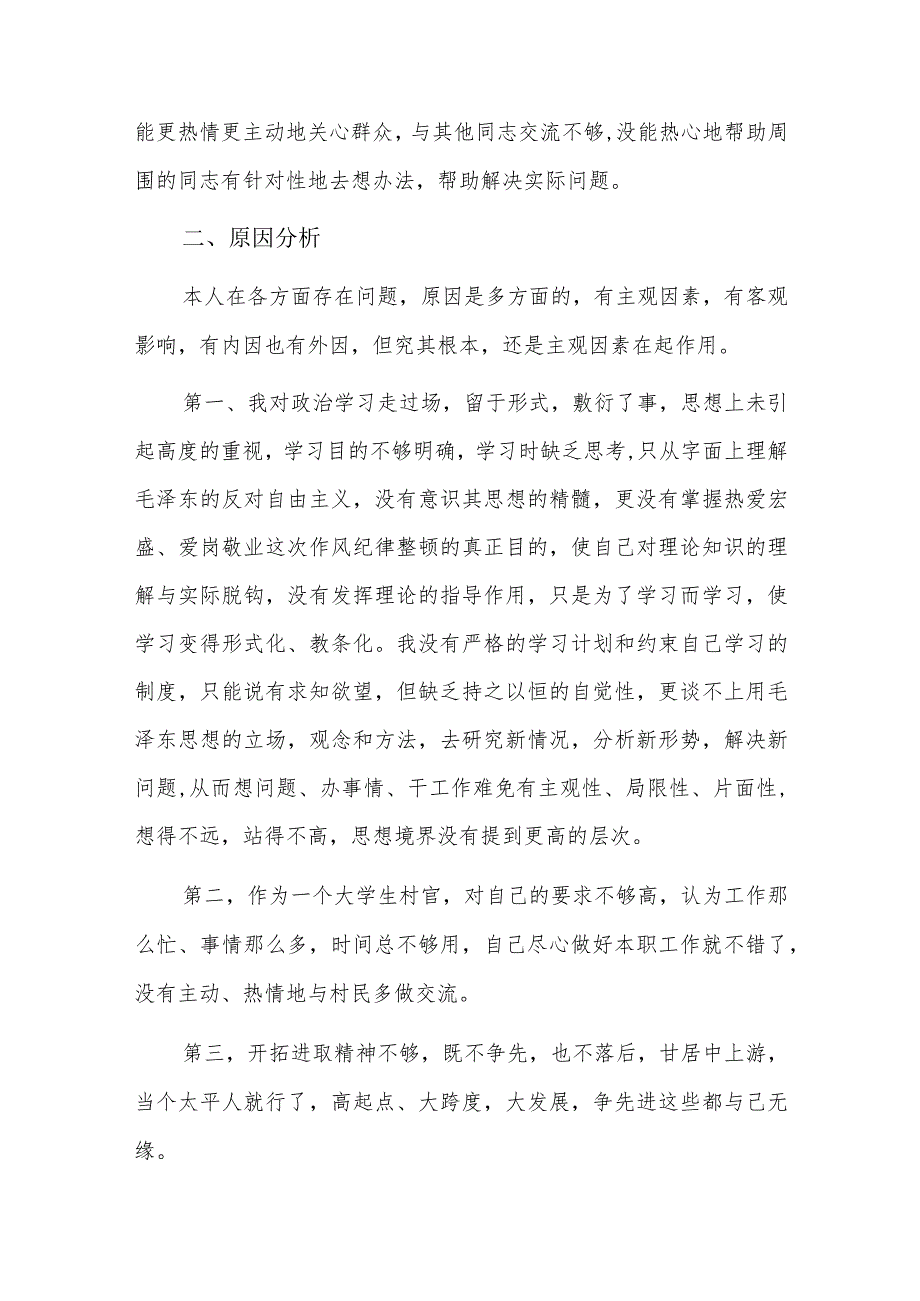 能更热情更主动地关心群众，与其他同志交流不够,没能热心地帮助周
围的同志有针对性地去想办法，帮助解决实际问题。
二、原因分析
本人在各方面存在问题，原因是多方面的，有主观因素，有客观
影响，有内因也有外因，但究其根本，还是主观因素在起作用。
第一、我对政治学习走过场，留于形式，敷衍了事，思想上未引
起高度的重视，学习目的不够明确，学习时缺乏思考,只从字面上理解
毛泽东的反对自由主义，没有意识其思想的精髓，更没有掌握热爱宏
盛、爱岗敬业这次作风纪律整顿的真正目的，使自己对理论知识的理
解与实际脱钩，没有发挥理论的指导作用，只是为了学习而学习，使
学习变得形式化、教条化。我没有严格的学习计划和约束自己学习的
制度，只能说有求知欲望，但缺乏持之以恒的自觉性，更谈不上用毛
泽东思想的立场，观念和方法，去研究新情况，分析新形势，解决新
问题,从而想问题、办事情、干工作难免有主观性、局限性、片面性，
想得不远，站得不高，思想境界没有提到更高的层次。
第二，作为一个大学生村官，对自己的要求不够高，认为工作那
么忙、事情那么多，时间总不够用，自己尽心做好本职工作就不错了，
没有主动、热情地与村民多做交流。
第三，开拓进取精神不够，既不争先，也不落后，甘居中上游，
当个太平人就行了，高起点、大跨度，大发展，争先进这些都与己无
缘。